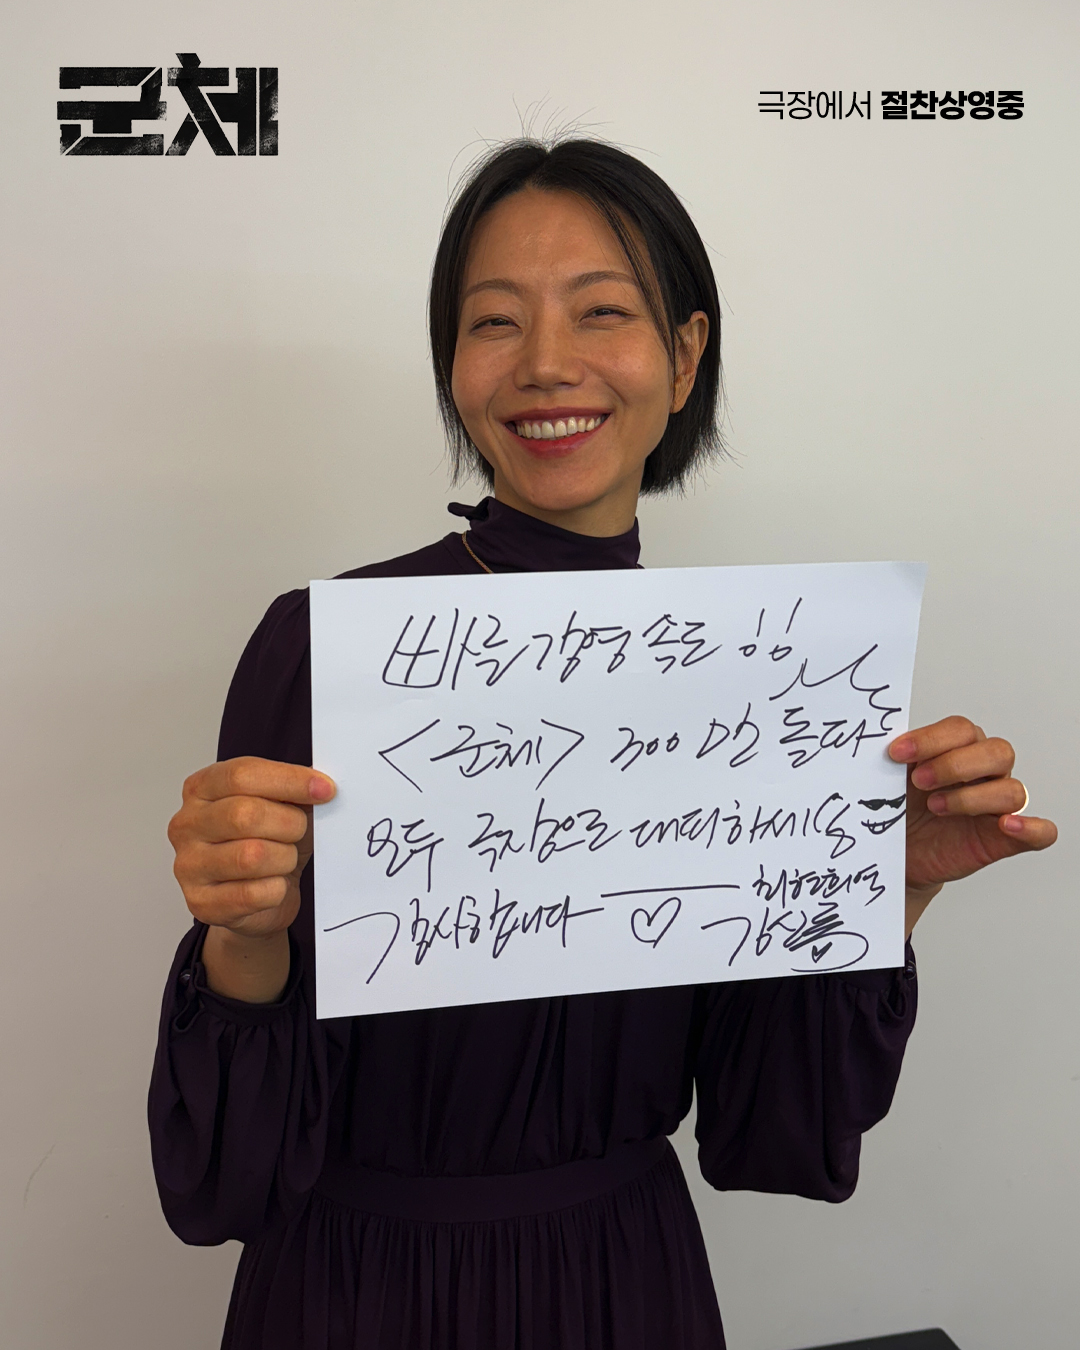 군체
극장에서 절찬상영중
빠른 감염 속도!!
<군체> 300만 돌파
모두 극장으로 대피하세요
감사합니다 ♡
최현희역
김신록